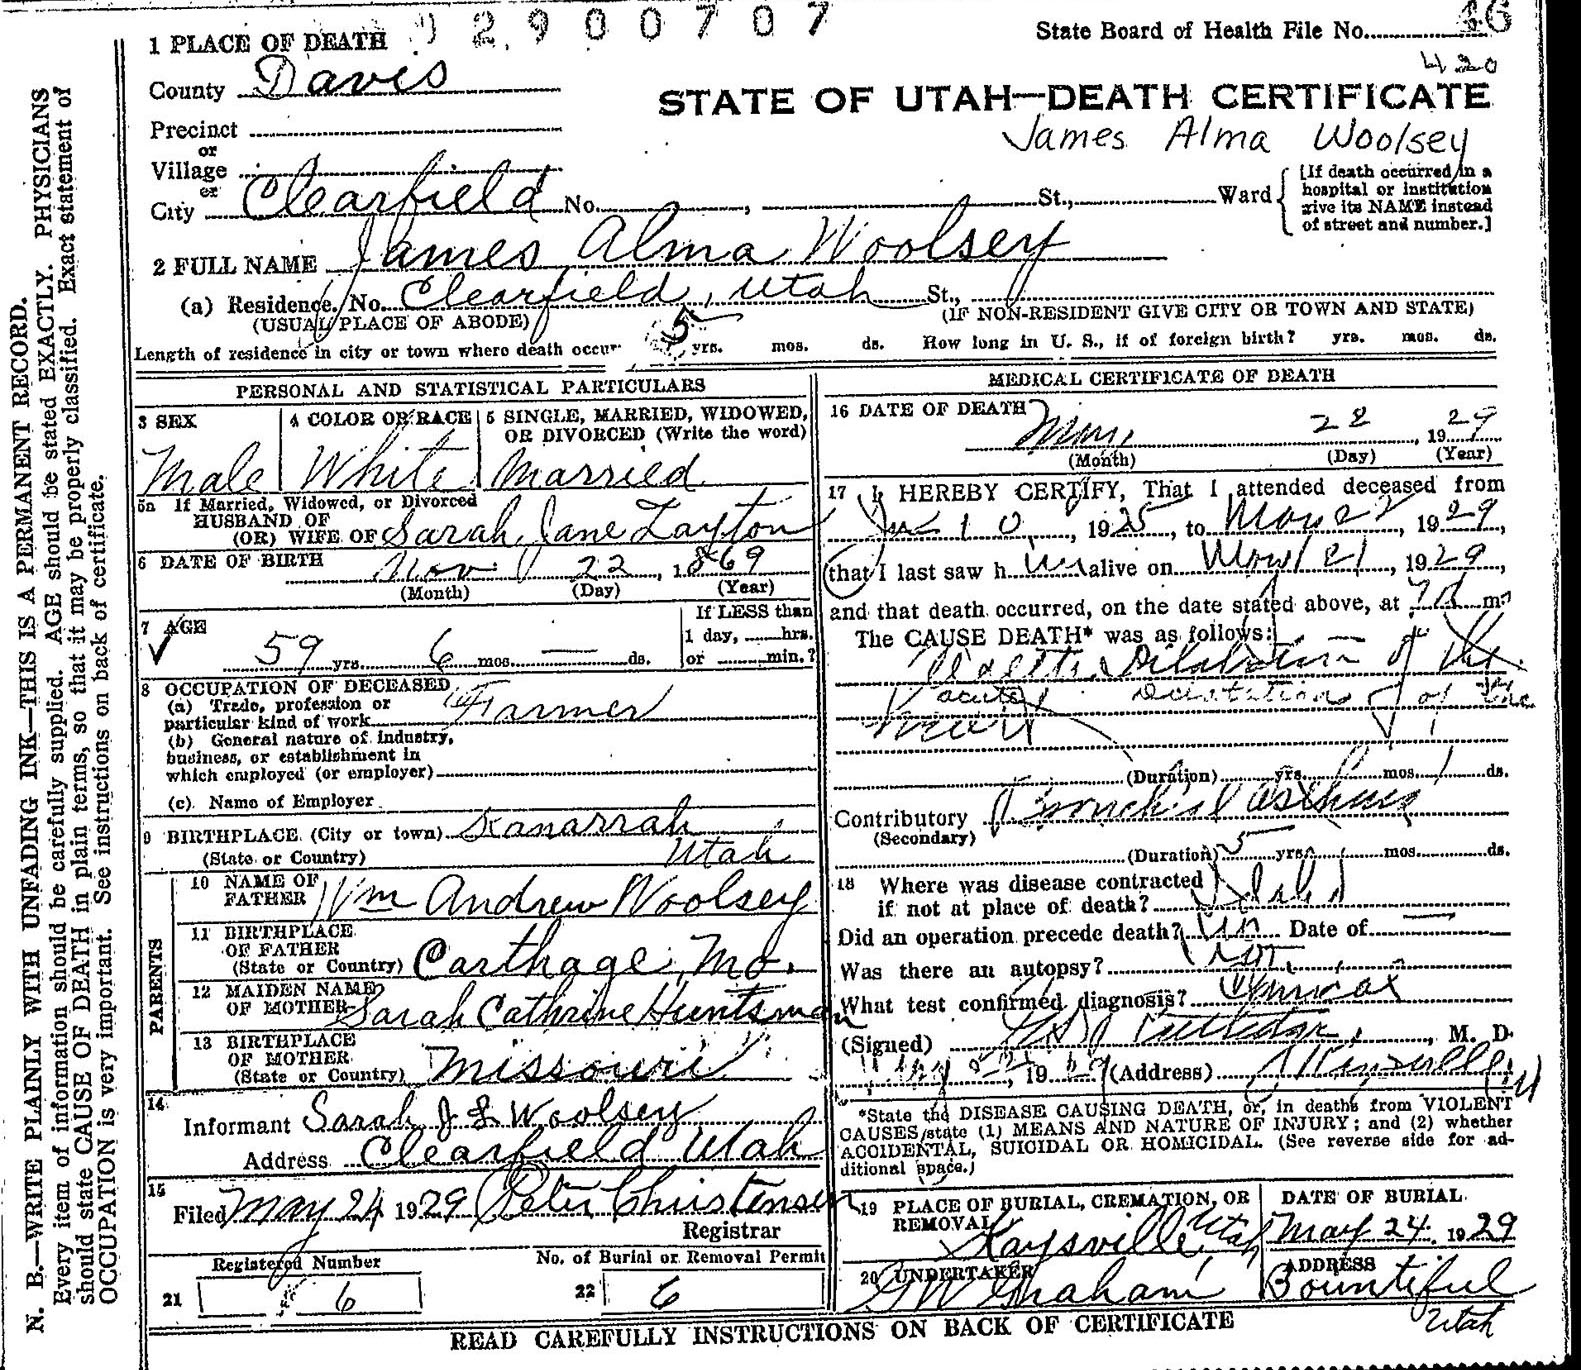 2900707
State Board of Health File No. 46
420
1 PLACE OF DEATH
County Davis
STATE OF UTAH—DEATH CERTIFICATE
Precinct
James Alma Woolsey
or
Village
or
City Clearfield No. , St., Ward
[If death occurred in a
hospital or institution
give its NAME instead
of street and number.]
2 FULL NAME James Alma Woolsey
(a) Residence. No. Clearfield, Utah St.,
(USUAL PLACE OF ABODE) (IF NON-RESIDENT GIVE CITY OR TOWN AND STATE)
Length of residence in city or town where death occur 5 yrs. mos. ds. How long in U. S., if of foreign birth? yrs. mos. ds.
PERSONAL AND STATISTICAL PARTICULARS
3 SEX 4 COLOR OR RACE 5 SINGLE, MARRIED, WIDOWED,
OR DIVORCED (Write the word)
Male White Married
5a If Married, Widowed, or Divorced
HUSBAND OF
(OR) WIFE OF Sarah Jane Layton
6 DATE OF BIRTH Nov 22, 1869
(Month) (Day) (Year)
7 AGE If LESS than
1 day, hrs.
59 yrs. 6 mos. — ds. or min.?
8 OCCUPATION OF DECEASED
(a) Trade, profession or
particular kind of work Farmer
(b) General nature of industry,
business, or establishment in
which employed (or employer)
(c) Name of Employer
9 BIRTHPLACE (City or town) Kanarrah
(State or Country) Utah
PARENTS
10 NAME OF
FATHER Wm Andrew Woolsey
11 BIRTHPLACE
OF FATHER
(State or Country) Carthage, Mo.
12 MAIDEN NAME
OF MOTHER Sarah Cathrine Huntsman
13 BIRTHPLACE
OF MOTHER
(State or Country) Missouri
14
Informant Sarah J L Woolsey
Address Clearfield Utah
15
Filed May 24 1929 Peter Christensen
Registrar
Registered Number No. of Burial or Removal Permit
21 6 22 6
MEDICAL CERTIFICATE OF DEATH
16 DATE OF DEATH 22, 1929
(Month) (Day) (Year)
17 I HEREBY CERTIFY, That I attended deceased from
10, 1925, to May 22, 1929,
that I last saw h im alive on May 21, 1929,
and that death occurred, on the date stated above, at m.
The CAUSE DEATH* was as follows:
Dilatation of the
acute Dilatation of the
heart
(Duration) yrs. mos. 1 ds.
Contributory Bronchial asthma
(Secondary)
(Duration) 5 yrs. mos. ds.
18 Where was disease contracted
if not at place of death?
Did an operation precede death? Date of —
Was there an autopsy?
What test confirmed diagnosis? Clinical
(Signed) , M. D.
, 1929 (Address)
*State the DISEASE CAUSING DEATH, or, in deaths from VIOLENT
CAUSES state (1) MEANS AND NATURE OF INJURY; and (2) whether
ACCIDENTAL, SUICIDAL OR HOMICIDAL. (See reverse side for ad-
ditional space.)
19 PLACE OF BURIAL, CREMATION, OR
REMOVAL
Kaysville, Utah
DATE OF BURIAL
May 24, 1929
20 UNDERTAKER
GW Graham
ADDRESS
Bountiful
Utah
READ CAREFULLY INSTRUCTIONS ON BACK OF CERTIFICATE
N. B.—WRITE PLAINLY WITH UNFADING INK—THIS IS A PERMANENT RECORD.
Every item of information should be carefully supplied. AGE should be stated EXACTLY. PHYSICIANS
should state CAUSE OF DEATH in plain terms, so that it may be properly classified. Exact statement of
OCCUPATION is very important. See instructions on back of certificate.